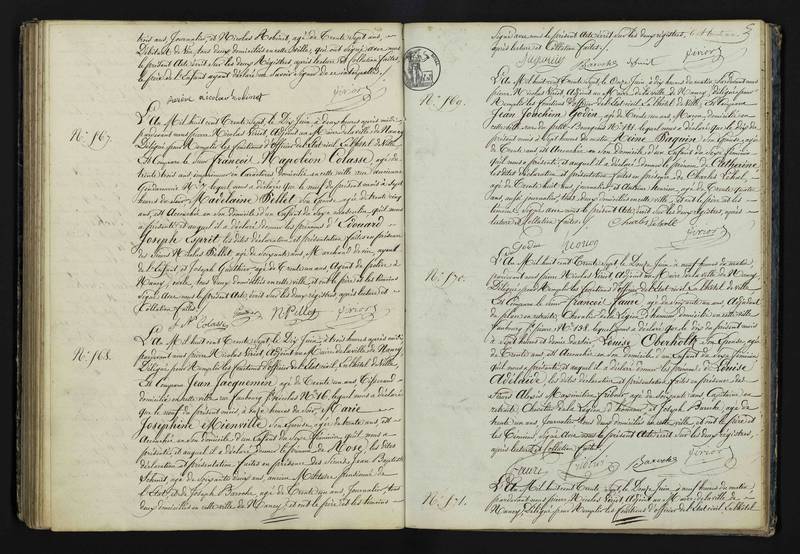 trois ans, Journalier, et Nicolas Robinet, agé de Trente sept ans,
Débitant de vin, tous deux domiciliés en cette Ville, qui ont signé avec nous
le présent Acte écrit sur les deux Registres, après lecture et Collation faites,
le père de l'Enfant ayant déclaré ne savoir signer de ce interpellé./.
nicolas robinet
N.° 167.
L'An Mil huit cent trente sept, le Dix Juin, à deux heures après midi,
pardevant nous Pierre Nicolas Adjoint au Maire de la ville de Nancy
Délégué pour Remplir les fonctions d'officier de l'Etat civil, En l'hôtel de Ville,
Est Comparu le Sieur françois Napoléon Colasse, agé de
trente trois ans, imprimeur en Caractères domicilié en cette ville rue
Gendarmerie N.° 7, lequel nous a déclaré que le neuf du présent mois à sept
heures du soir, Madelaine Pillet son Epouse, agée de trente cinq
ans, est Accouchée en son domicile d'un Enfant du Sexe Masculin, qu'il nous
a présenté et auquel il a déclaré donner les prénoms d'Edouard
Joseph Esprit, les dites déclaration et présentation faites en présence
des Sieurs Nicolas Pillet, agé de Soixante ans, Marchand de vin, ayeul
de l'Enfant et Joseph Gauthier, agé de trente six ans, Agent de police à
Nancy, oncle, tous deux domiciliés en cette ville, et ont le père et les témoins
Signé Avec nous le présent Acte écrit sur les deux registres après lecture et
Collation faites./.
Colasse N Pillet
N.° 168.
L'An Mil huit cent trente Sept, le Dix Juin, à trois heures après midi,
pardevant nous Pierre Nicolas Adjoint au Maire de la ville de Nancy
Délégué pour Remplir les fonctions d'officier de l'Etat civil, En l'hôtel de Ville,
Est Comparu Jean Jacquemin, agé de trente un ans, Tisserand
domicilié en cette ville N.° 16, lequel nous a déclaré
que le neuf du présent mois, à onze heures du Soir, Marie
Josephine Mienville son Epouse, agée de trente ans, est
Accouchée en son domicile d'un Enfant du Sexe Féminin, qu'il nous a
présenté, et auquel il a déclaré donner le prénom de Rose, les dites
déclaration et présentation faites en présence des Sieurs Jean Baptiste
Schmit, agé de Soixante deux ans, ancien Militaire pensionné de
l'Etat et de Joseph Baroche, agé de Trente un ans, Journalier, tous
deux domiciliés en cette ville de Nancy, et ont le père et les témoins
Signé avec nous le présent Acte écrit sur les deux registres,
après lecture et Collation faites./.
Baroche Schmit
N.° 169.
L'An Mil huit cent Trente Sept, le Onze Juin, à dix heures du matin, pardevant nous
pierre Nicolas Adjoint au Maire de la ville de Nancy, délégué pour
Remplir les fonctions d'officier de l'Etat civil, En l'hôtel de Ville, Est Comparu
Jean Joachim Godin, agé de trente ans, Maçon, domicilié en
cette ville N.° 191, lequel nous a déclaré que le dix du
présent mois à Sept heures du matin Reine Baquin Son Epouse, agée
de Trente ans, est Accouchée en Son domicile d'un Enfant du Sexe féminin
qu'il nous a présenté, et auquel il a déclaré donner le prénom de Catherine,
les dites déclaration et présentation faites en présence de Charles
agé de Trente huit ans, journalier, et Antoine agé de Trente quatre
ans, aussi journalier, tous deux domiciliés en cette ville, et ont le père et les
témoins Signé avec nous le présent Acte écrit sur les deux registres, après
lecture et Collation faites./.
Godin Charles
N.° 170.
L'An Mil huit cent Trente Sept, le Douze Juin, à neuf heures du matin,
pardevant nous pierre Nicolas Adjoint au Maire de la ville de Nancy,
Délégué pour Remplir les fonctions d'officier de l'Etat civil, En l'hôtel de ville
Est Comparu le Sieur françois Faure agé de Soixante un ans, Adjudant
de place en retraite, Chevalier de la Légion d'honneur, domicilié en cette ville
faubourg St pierre N.° 138, lequel nous a déclaré que le dix du présent mois
à Sept heures et demie Louise Oberholtz Son Epouse, agée
de Trente ans, est Accouchée en Son domicile d'un Enfant du Sexe féminin
qu'il nous a présenté, et auquel il a déclaré donner les prénoms de Louise
Adelaïde, les dites déclaration et présentation faites en présence des
Sieurs Alexis Maximilien agé de Soixante ans, Capitaine en
retraite, Chevalier de la Légion d'honneur, et Joseph Baroche, agé de
trente un ans, Journalier, tous deux domiciliés en cette ville, et ont le père et
les témoins Signé Avec nous le présent Acte écrit sur les deux registres,
après lecture et Collation faites./.
Faure Baroche
N.° 171.
L'An Mil huit cent Trente Sept, le Douze Juin, à neuf heures du matin,
pardevant nous pierre Nicolas Adjoint au Maire de la ville de
Nancy, Délégué pour Remplir les fonctions d'officier de l'Etat civil, En l'hôtel